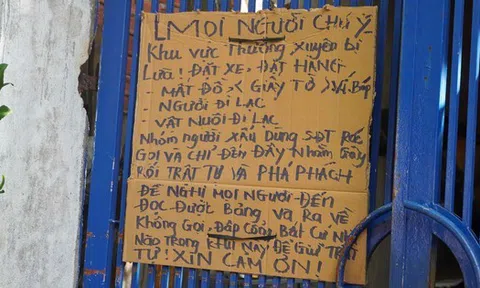 MỌI NGƯỜI CHÚ Ý
Khu vực Thường xuyên bị
Lừa! ĐẶT XE, ĐẶT HÀNG
- MẤT ĐỒ > < GIẤY TỜ >
NGƯỜI ĐI LẠC
VẬT NUÔI ĐI LẠC
Nhóm người XẤU DÙNG SĐT RÁC
GỌI VÀ CHỈ ĐẾN ĐÂY NHẰM GÂY
RỐI TRẬT TỰ VÀ PHÁ PHÁCH
ĐỀ NGHỊ MỌI NGƯỜI ĐẾN
ĐỌC ĐƯỢC BẢNG Và RA VỀ
KHÔNG GỌI, ĐẬP CỔNG BẤT CỨ NHÀ
NÀO TRONG KHU NÀY ĐỂ GIỮ TRẬT
TỰ! XIN CẢM ƠN!